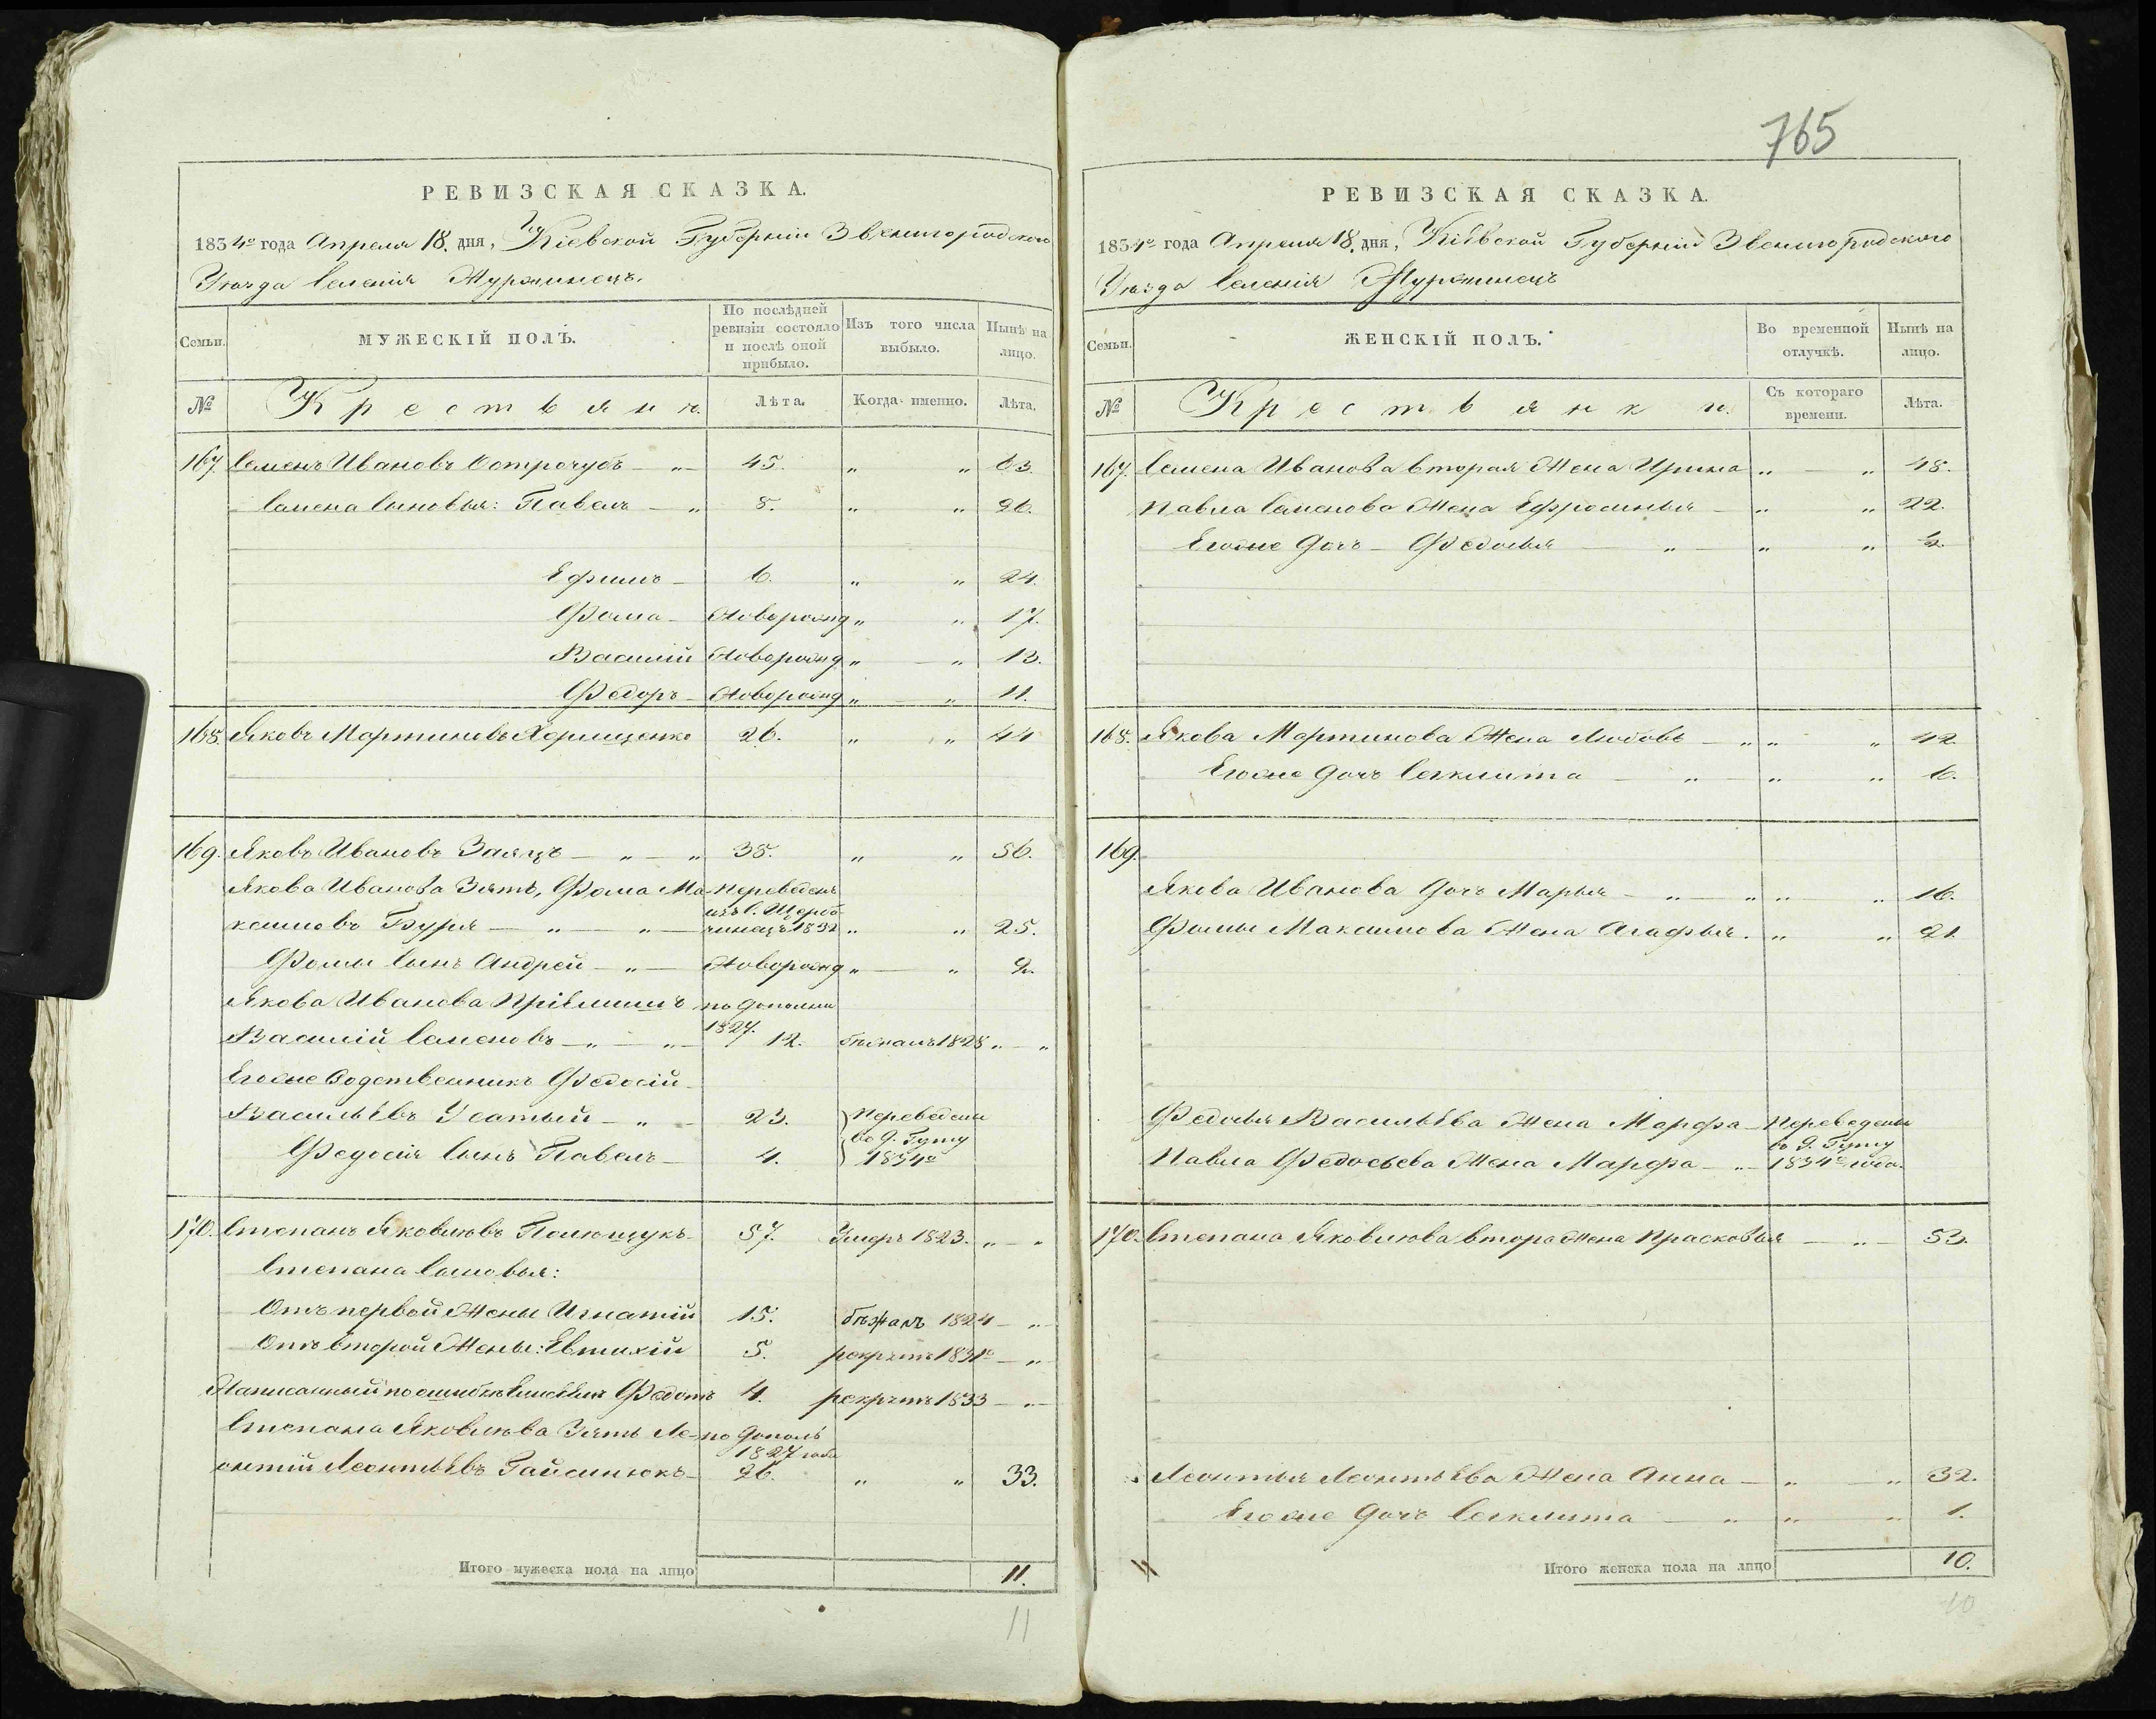 РЕВИЗСКАЯ СКАЗКА.
1834го года Апреля 18. дня, Кіевской Губерніи Звенигородского
Уѣзда Селенія Журжинецъ.
Семьи.
МУЖЕСКІЙ ПОЛЪ.
По послѣдней ревизіи состояло и послѣ оной прибыло.
Изъ того числа выбыло.
Нынѣ на лицо.
№ Крестьянъ. Лѣта. Когда именно. Лѣта.
167. Семенъ Ивановъ Острочубъ — „ 45. „ „ 63.
Семена Сыновья: Павелъ — „ 8. „ „ 26.
Ефимъ — 6. „ „ 24.
Фома — Новорожд „ „ 17.
Василий Новорожд „ „ 13.
Федоръ — Новорожд „ „ 11.
168. Яковъ Мартиновъ Харищенко 26. „ „ 44
169. Яковъ Ивановъ Заяцъ — „ — „ 38. „ „ 56.
Якова Иванова Зять, Фома Ма- переведенъ
изъ с. Щерба-
ксимовъ Буря — „ — „ чинецъ 1832 „ „ 25.
Фомы Сынъ Андрей — „ — Новорожд „ „ 2.
Якова Иванова Пріемышъ по дополни
1827.
Василий Семеновъ — „ — „ 12. бѣжалъ 1828 „ — „
Егоже Родственникъ Федосій
Васильевъ Усатый — „ — 23. переведены
во д. Гуту
Федосія Сынъ Павелъ — 4. 1834го
170. Степанъ Яковлювъ Полющукъ 57. Умеръ 1823. „ — „
Степана Сыновья:
Отъ первой Жены Игнатій 15. бѣжалъ 1824 — „
Отъ второй Жены: Евтихій 5. рекрутъ 1831го — „
Написанный по ошибкѣ Федотъ 4. рекрутъ 1833 — „
Степана Яковлюва Зять Ле- по дополъ
1827 года
онтій Леонтьевъ Гайсинюкъ — 26. „ „ 33.
Итого мужеска пола на лицо 11.
11
765
РЕВИЗСКАЯ СКАЗКА.
1834го года Апреля 18. дня, Кіевской Губерніи Звенигородского
Уѣзда Селенія Журжинецъ
Семьи.
ЖЕНСКІЙ ПОЛЪ.
Во временной отлучкѣ.
Нынѣ на лицо.
№ Крестьянки. Съ котораго времени. Лѣта.
167. Семена Иванова вторая Жена Ирина „ — „ 48.
Павла Семенова Жена Ефросинья — „ „ 22.
Егоже дочъ — Федосья — „ — „ „ ½.
168. Якова Мартинова Жена Любовь — „ „ „ 42.
Егоже дочъ Секлита — „ — „ „ 6.
169.
Якова Иванова дочъ Марья — „ — „ „ „ 16.
Фомы Максимова Жена Агафья. „ „ 21.
Федосія Васильева Жена Марфа — переведены
въ д. Гуту
Павла Федосьева Жена Марфа — „ — 1834го года.
170. Степана Яковлюва втора Жена Прасковья — „ — 53.
Леонтія Леонтьева Жена Анна — „ — „ 32.
Егоже дочъ Секлита — „ „ „ 1.
Итого женска пола на лицо 10.
10